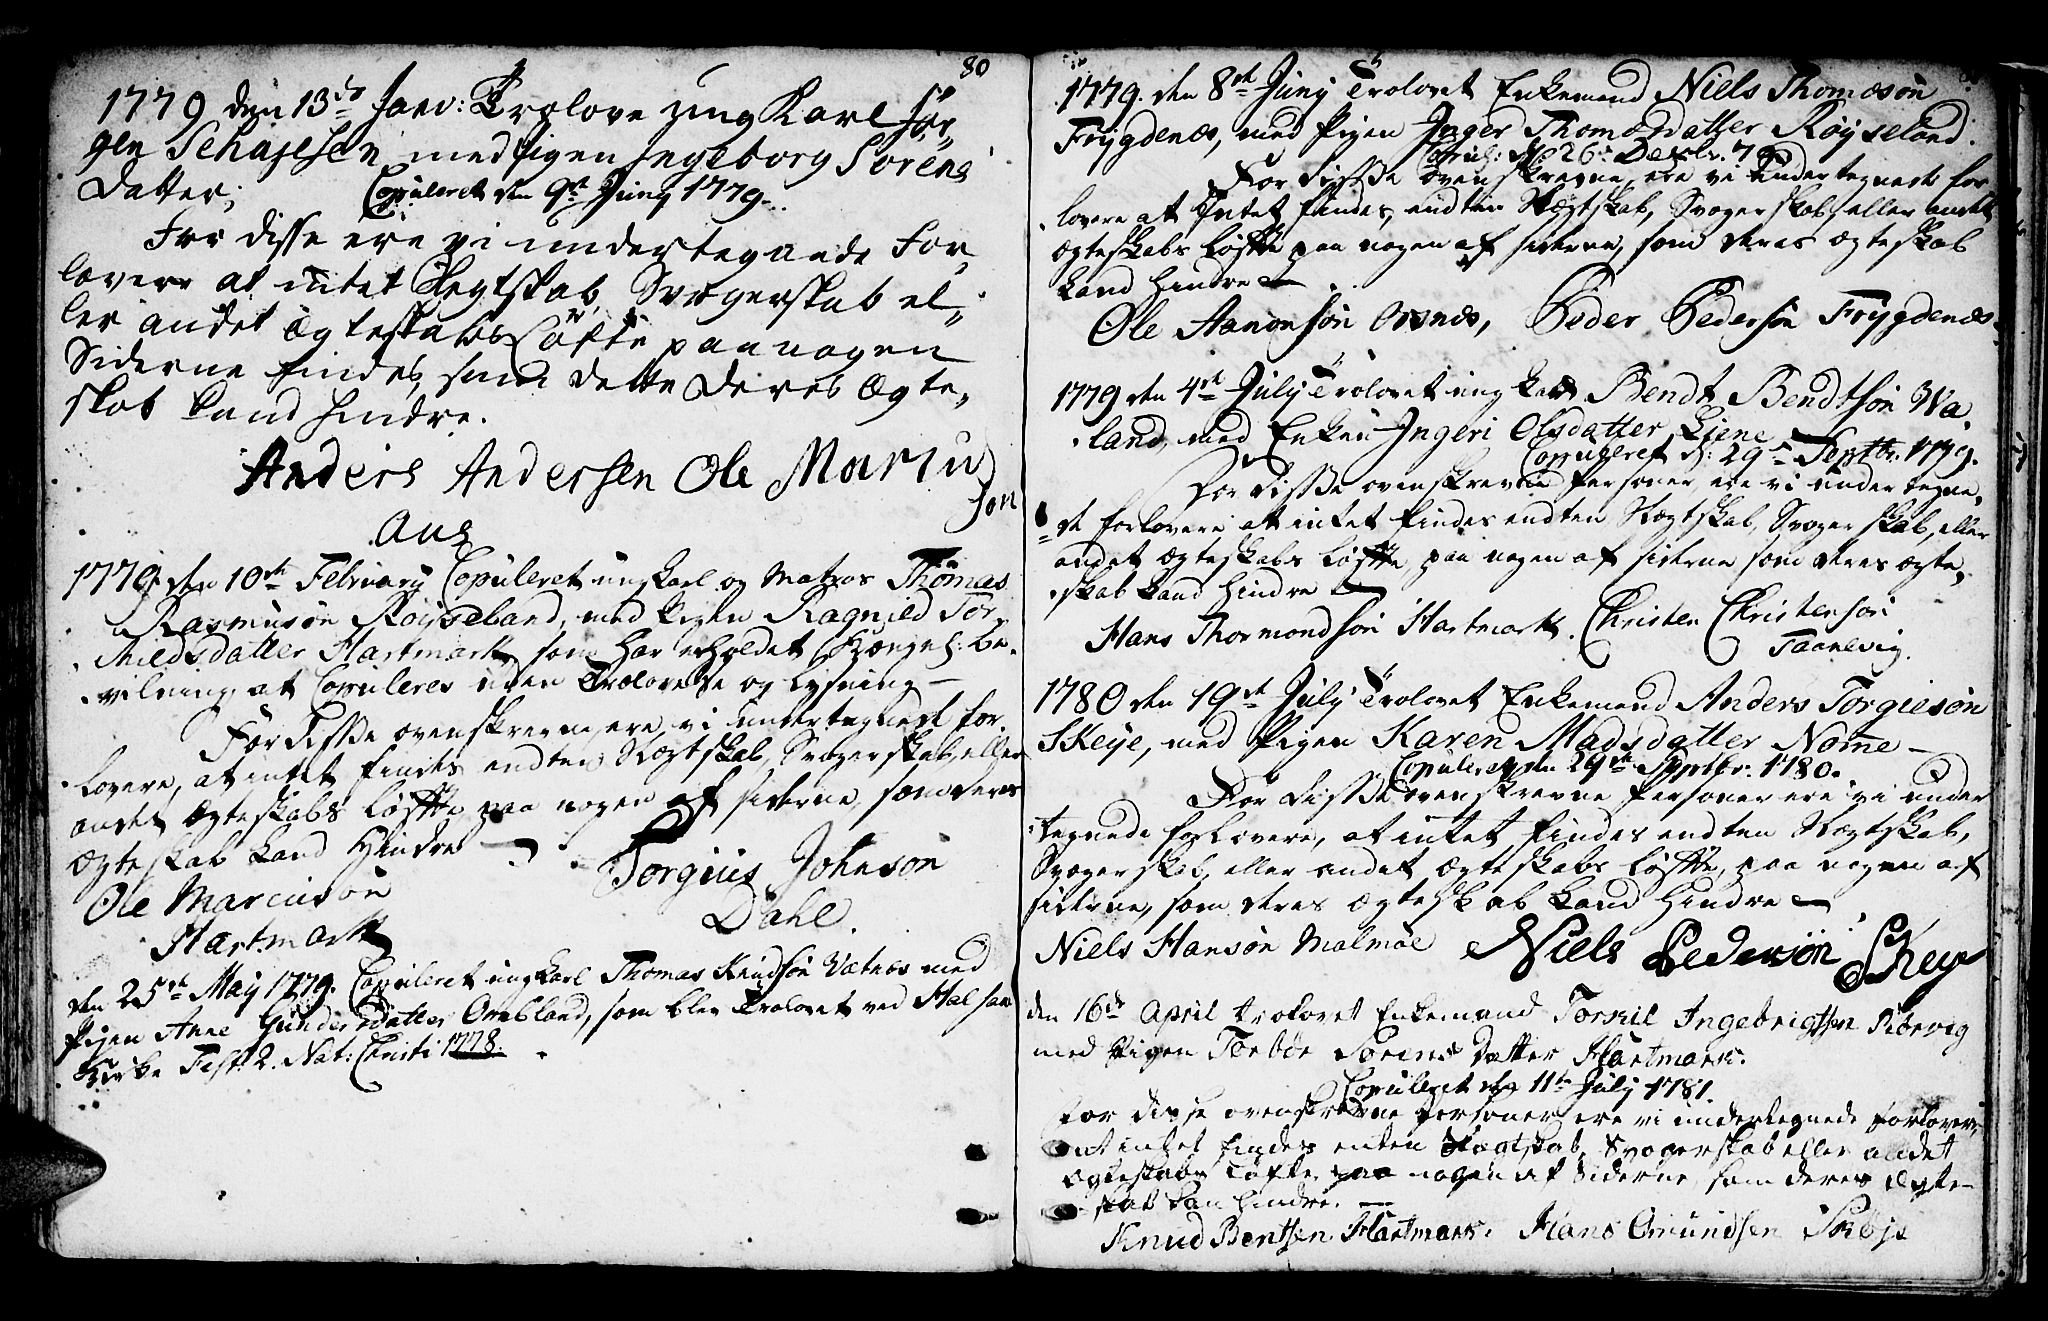 80
1779 den 13de Janv: Trolove ung Karl Jør„
gen Schajesen med Pigen Ingeborg Sørens
Datter,
Copuleret den 9de Juny 1779.
For disse ere vi undertegnede For„
lovere at intet Slegtskab, Svogerskab el„
ler andet Ægteskabs Løfte paa nogen
Siderne findes, som dette deres Ægte„
skab kand hindre.
Anders Andersen Ole Marcu
sen
Aus
1779 den 10de February Copuleret ungkarl og Matros Thomas
Rasmusøn Røyseland, med Pigen Ragnild Tor„
kieldsdatter Hartmark, som har erholdet Kongel: be„
vilning at Copuleres uden Trolovelse og Lysning –
For disse ovenskrevne ere vi undertegnede for„
lovere, at intet findes endten Slægtskab, Svogerskab, eller
andet Ægteskabs Løfte paa nogen af siderne, som deres
Ægteskab kand Hindre –
Torgius Johnson
Dahl.
Ole Marcusøn
Hartmark
den 25de May 1779. Copuleret ungkarl Thomas Knudsøn Vatnes med
Pigen Anne Gundersdatter Ombland, som blev Trolovet ved Halsaa
Kirke Fest. 2. Nat: Christi 1778.
1779. den 8de Juny Trolovet Enkemand Niels Thomæsøn
Frygdenæs, med Pigen Inger Thomasdatter Røyseland.
Copul: d: 26de Decbr. 79
For disse ovenskrevne ere vi undertegnede for„
lovere at Intet findes, endten Slægtskab, Svogerskab eller andet
Ægteskabs Løfte paa nogen af siderne, som deres Ægteskab
kand hindre –
Ole Aanonsøn Osnæs, Peder Pedersøn Frygdenæs.
1779 den 4de July Trolovet ung karl Bendt Bendtsøn Wa„
land, med Enken Ingeri Olsdatter Eiene
Copuleret d: 29de Septbr. 1779.
For disse ovenskrevne Personer ere vi undertegne„
de forlovere, at intet findes endten Slægtskab, Svogerskab, eller
andet Ægteskabs Løfte paa nogen af siderne, som deres Ægte„
skab kand hindre –
Hans Thormondsøn Hartmark. Christen Christensøn
Taanevig.
1780 den 19de July Trolovet Enkemand Anders Torgiesøn
Skeye, med Pigen Karen Madsdatter Nome –
Copuleret den 29de Septbr. 1780.
For disse ovenskrevne Personer ere vi under
tegnede forlovere, at intet findes endten Slægtskab,
Svogerskab, eller andet Ægteskabs Løfte, paa nogen af
siderne, som deres Ægteskab kand Hindre –
Niels Hansøn Malmøe Niels Pedersøn Skeye
den 16de April trolovet Enkemand Torkil Ingebrigtsen
med Pigen Torbor Sørens Datter Hartmark.
Copuleret den 11te July 1781.
for disse ovenskrevne Personer ere vi undertegnede forlover„
at intet findes enten Slægtskab, Svogerskab eller andet
Ægteskabs Løfte paa nogen af Siderne, som deres Ægte–
skab kan hindre. –
Knud Bentsen Hartmark. Hans Omundsen Skøje